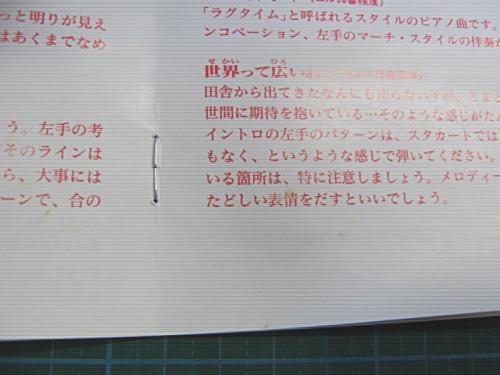 っと明りが見え
はあくまでなめ
う。左手の考
そのラインは
ら、大事には
ーンで、合の
「ラグタイム」と呼ばれるスタイルのピアノ曲です。
ンコペーション、左手のマーチ・スタイルの伴奏が
せかい ひろ
世界って広い
田舎から出てきたなんにも知らない子が、とまど
世間に期待を抱いている…そのような感じがたん
イントロの左手のパターンは、スタカートでは
もなく、というような感じで弾いてください。
いる箇所は、特に注意しましょう。メロディー
たどしい表情をだすといいでしょう。